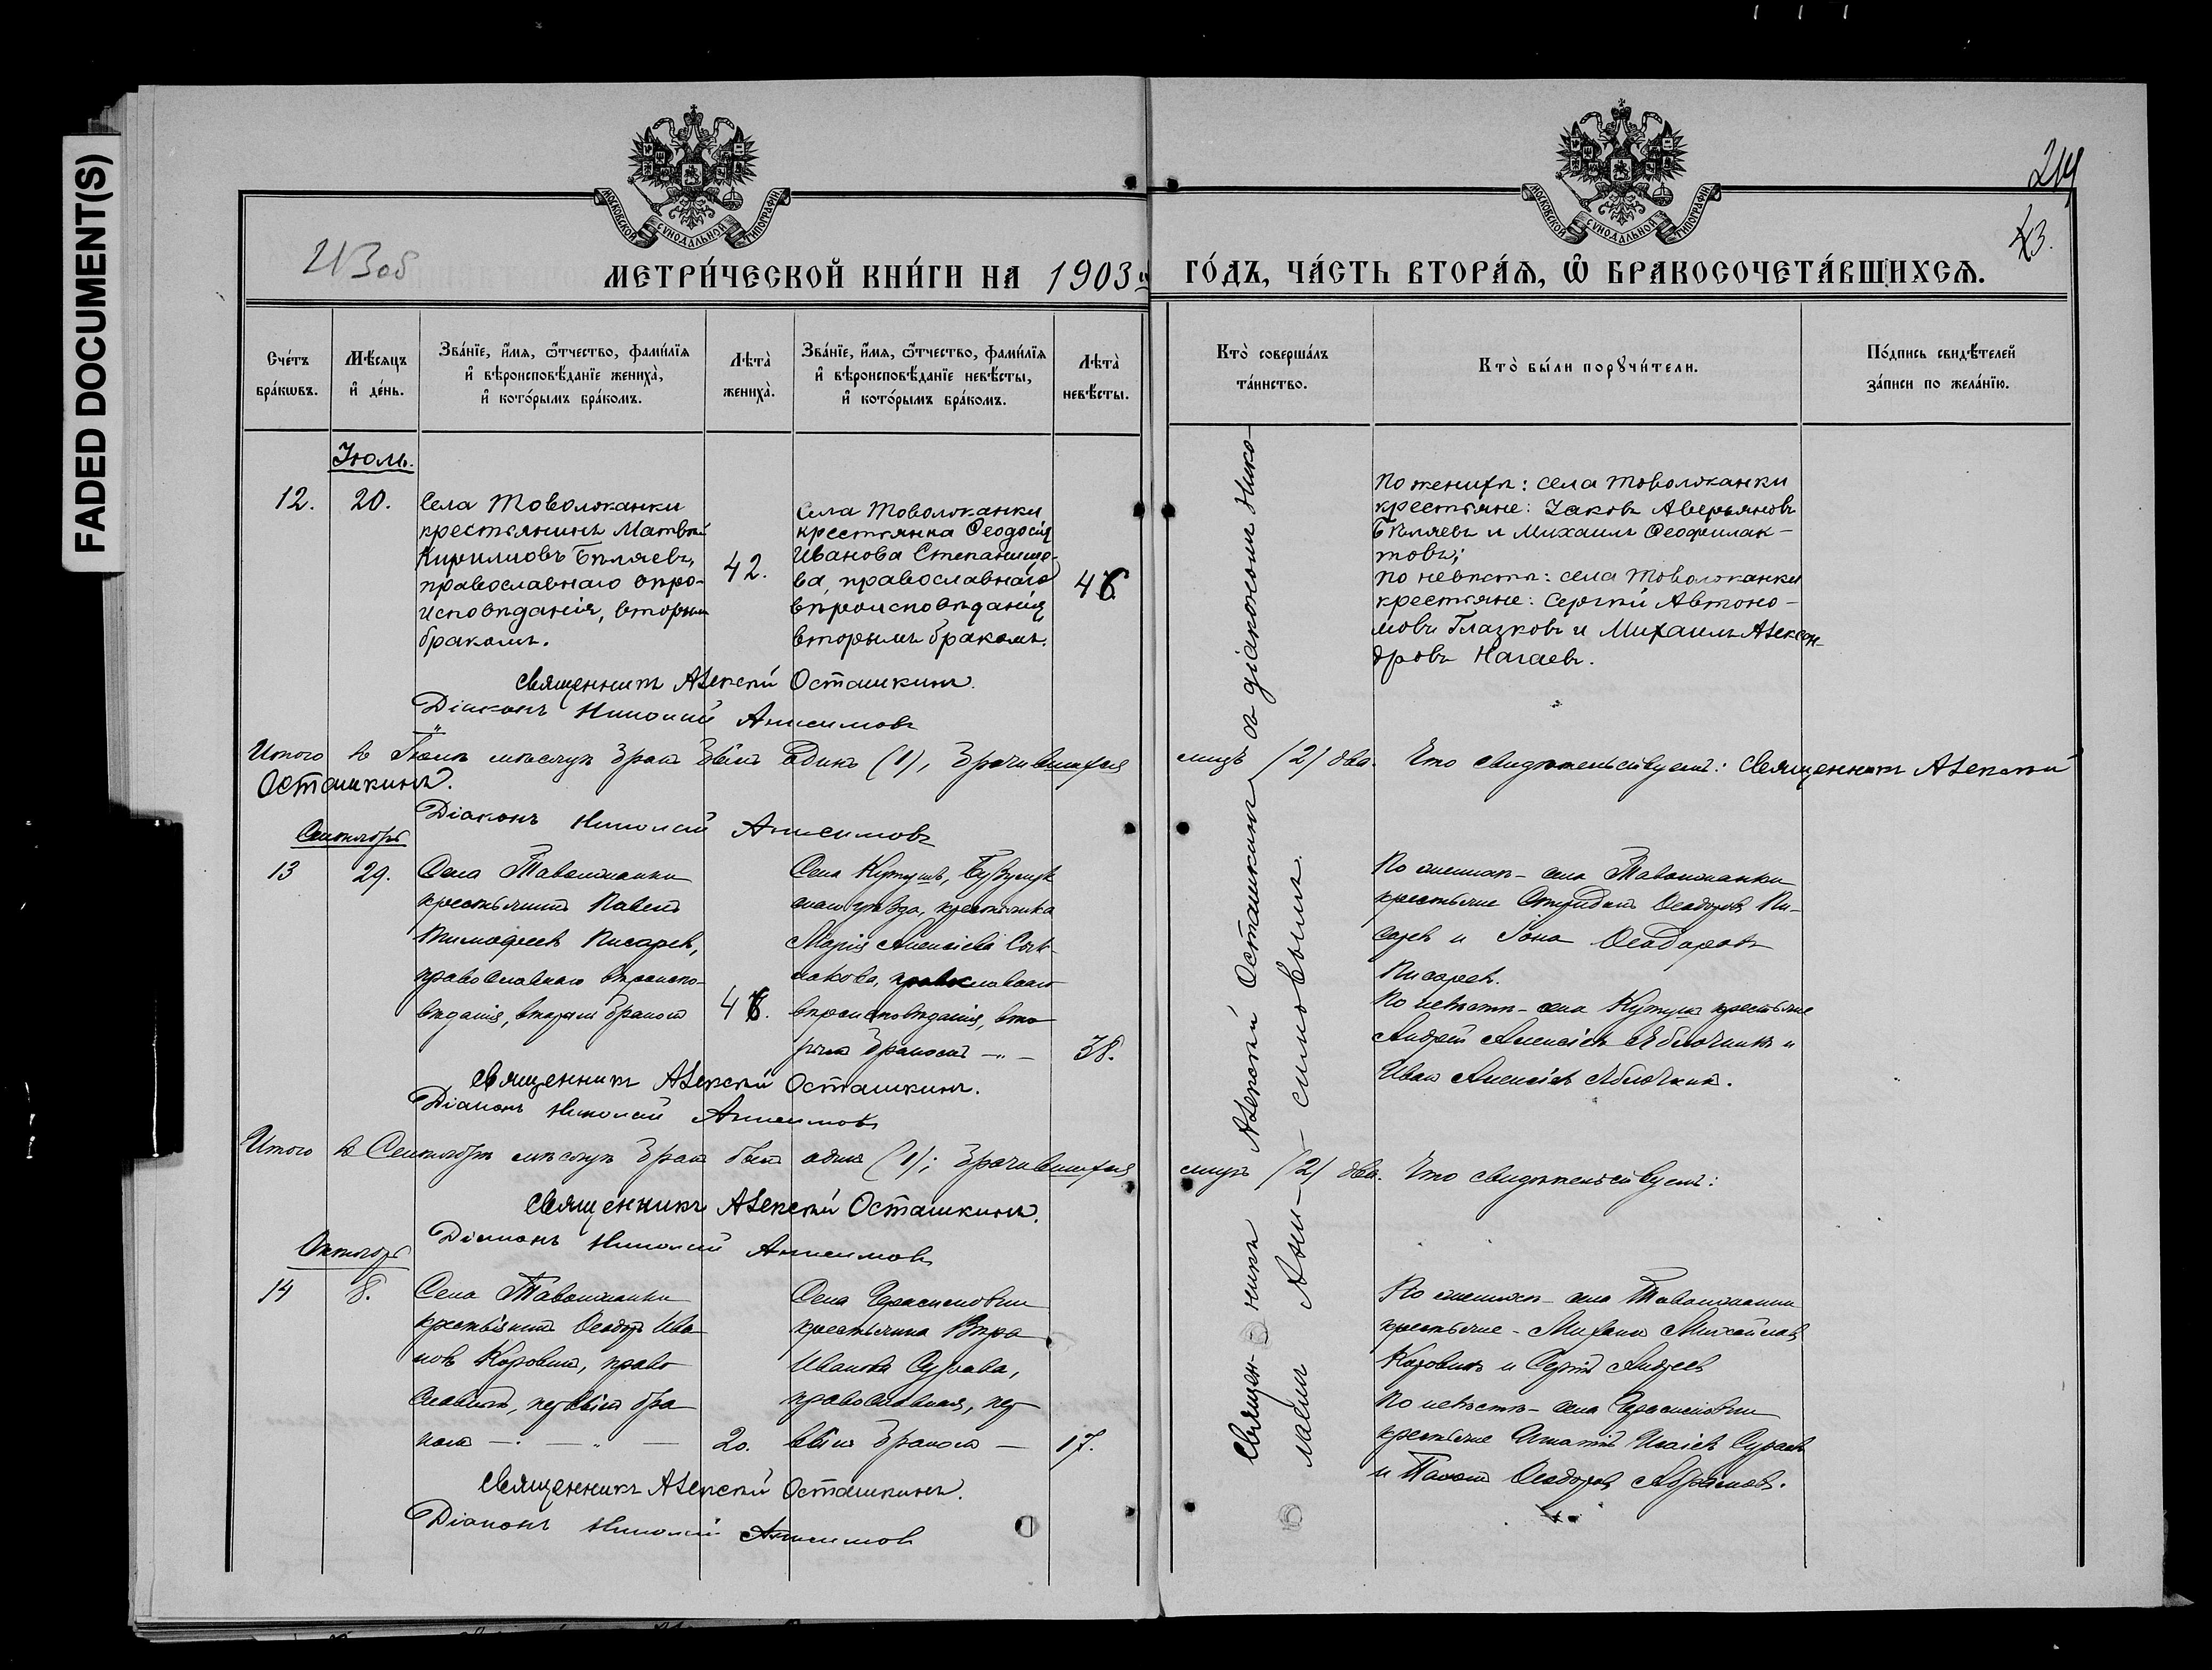 FADED DOCUMENT(S)
МОСКОВСКОЙ СѴНОДАЛЬНОЙ ТИПОГРАФІИ
МОСКОВСКОЙ СѴНОДАЛЬНОЙ ТИПОГРАФІИ
43.
МЕТРИ́ЧЕСКОЙ КНИ́ГИ НА 1903 ГО́ДЪ, ЧА́СТЬ ВТОРА́Ѧ, Ѽ БРАКОСОЧЕТА́ВШИХСѦ.
Сче́тъ бра́кѡвъ.
Мѣ́сяцъ и҆ де́нь.
Зва́нїе, и҆́мѧ, ѻ҆́тчество, фами́лїѧ
и҆ вѣроисповѣ́данїе жениха̀,
и҆ кото́рымъ бра́комъ.
Лѣта̀ жениха̀.
Зва́нїе, и҆́мѧ, ѻ҆́тчество, фами́лїѧ
и҆ вѣроисповѣ́данїе невѣ́сты,
и҆ кото́рымъ бра́комъ.
Лѣта̀ невѣ́сты.
Кто̀ соверша́лъ та́инство.
Кто̀ бы́ли порꙋчи́тели.
По́дпись свидѣ́телей за́писи по жела́нїю.
Іюль.
12.
20.
Села Товолжанки
крестьянинъ Матвѣй
Кирилловъ Бѣляевъ,
православнаго вѣро-
исповѣданія, вторым
бракомъ.
42.
Села Товолжанки
крестьянка Ѳеодосія
Иванова Степанищо-
ва, православнаго
вѣроисповѣданія,
вторымъ бракомъ.
Священникъ Алексѣй Осташкинъ
съ діакономъ Нико-
лаемъ Ани-симовымъ.
По женихѣ: села Товолжанки
крестьяне: Іаковъ Аверьяновъ
Бѣляевъ и Михаилъ Ѳеофилак-
товъ;
по невѣстѣ: села Товолжанки
крестьяне: Сергѣй Автоно-
мовъ Глазковъ и Михаилъ Алексан-
дровъ Нагаевъ.
Священникъ Алексѣй Осташкинъ.
Діаконъ Николай Анисимовъ
Итого въ Іюлѣ мѣсяцѣ бракъ былъ одинъ (1), брачившихся
лицъ (2) два. Что свидѣтельствуемъ: Священникъ Алексѣй
Осташкинъ.
Діаконъ Николай Анисимовъ
Сентябрь
13
29.
Села Товолжанки
крестьянинъ Павелъ
Тимофеевъ Писаревъ,
православнаго вѣроиспо-
вѣданія, вторымъ бракомъ
Села Кутуша, Бузулук
скаго уѣзда, крестьянка
Марія Алексіева
православнаго
вѣроисповѣданія, вто
рымъ бракомъ
38.
По женихѣ - села Товолжанки
крестьяне Ѳеодоровъ Пи-
саревъ и Іона Ѳеодоровъ
Писаревъ.
По невѣстѣ - села Кутуша крестьяне
Андрей Алексіевъ Яблочкинъ и
Иванъ Алексіевъ Яблочкинъ.
Священникъ Алексѣй Осташкинъ.
Діаконъ Николай Анисимовъ
Итого въ Сентябрѣ мѣсяцѣ бракъ былъ одинъ (1); брачившихся
лицъ (2) два. Что свидѣтельствуемъ:
Священникъ Алексѣй Осташкинъ.
Діаконъ Николай Анисимовъ
Октябрь
14
8.
Села Товолжанки
крестьянинъ Ѳеодоръ Ива
новъ Коровинъ, право
славный, первымъ бра
комъ
20.
Села Герасимовки
крестьянка Вѣра
Иванова Сураева,
православная, пер
вымъ бракомъ
17.
По женихѣ - села Товолжанки
крестьяне - Михаилъ Михайловъ
Коровинъ и Сергѣй Андреевъ
По невѣстѣ - села Герасимовки
крестьяне Игнатій Исаіевъ Сураевъ
и Ѳеодоровъ Абрамовъ.
Священникъ Алексѣй Осташкинъ.
Діаконъ Николай Анисимовъ